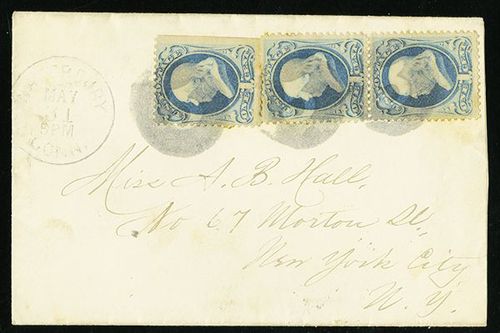 MAY
11
5PM
CONN.
Miss A. B. Hall,
No 67 Morton St.,
New York City
N. Y.